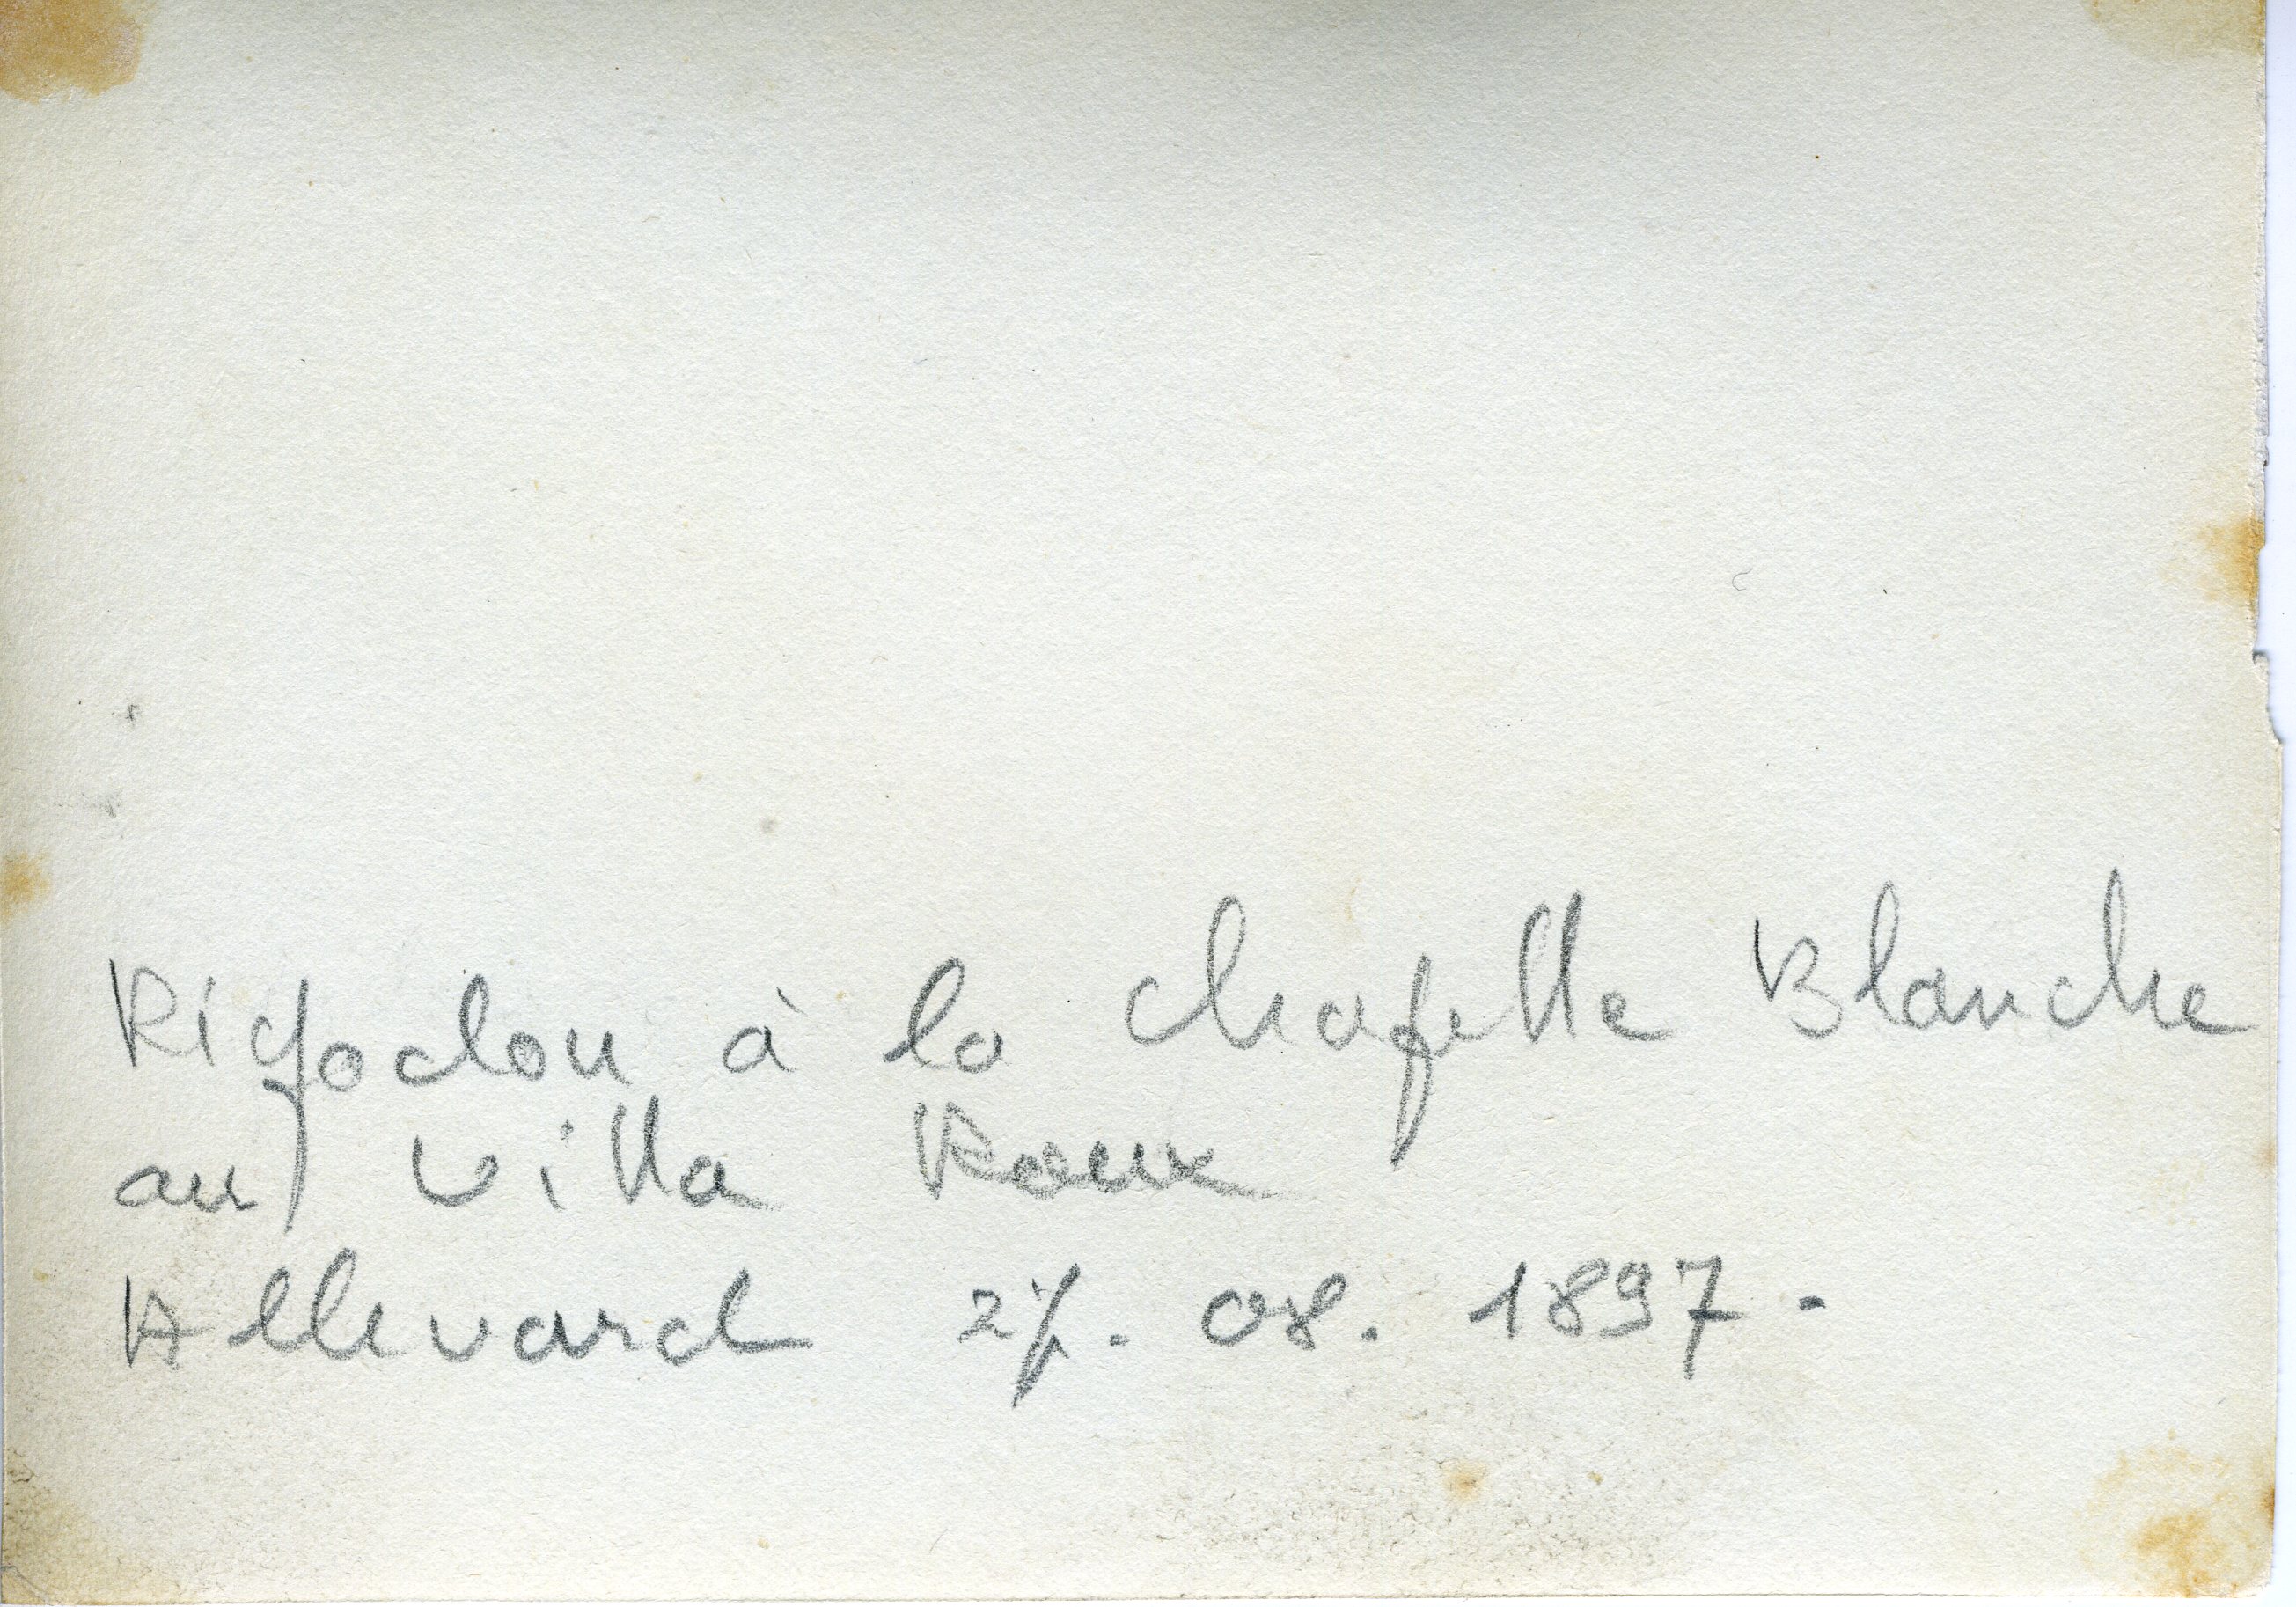 Rigodon à la Chapelle Blanche
au Villa Roux
Allevard 27. 08. 1897.